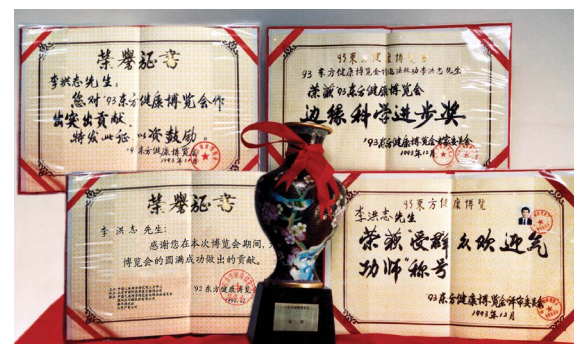 荣誉证书
李洪志先生:
您对'93东方健康博览会作
出突出贡献
特发此证 以资鼓励。
1993年12月
93東方健康博览会
李洪志先生:
荣获'93东方健康博览会
边缘科学进步奖
'93东方健康博览会评审委员会
1993年12月
荣誉证书
李洪志先生:
感谢您在本次博览会期间,
博览会的圆满成功做出的贡献。
'92东方健康博览会
93東方健康博览
李洪志先生
荣获"受群众欢迎气
功师"称号
'93东方健康博览会评审委员会
1993年12月